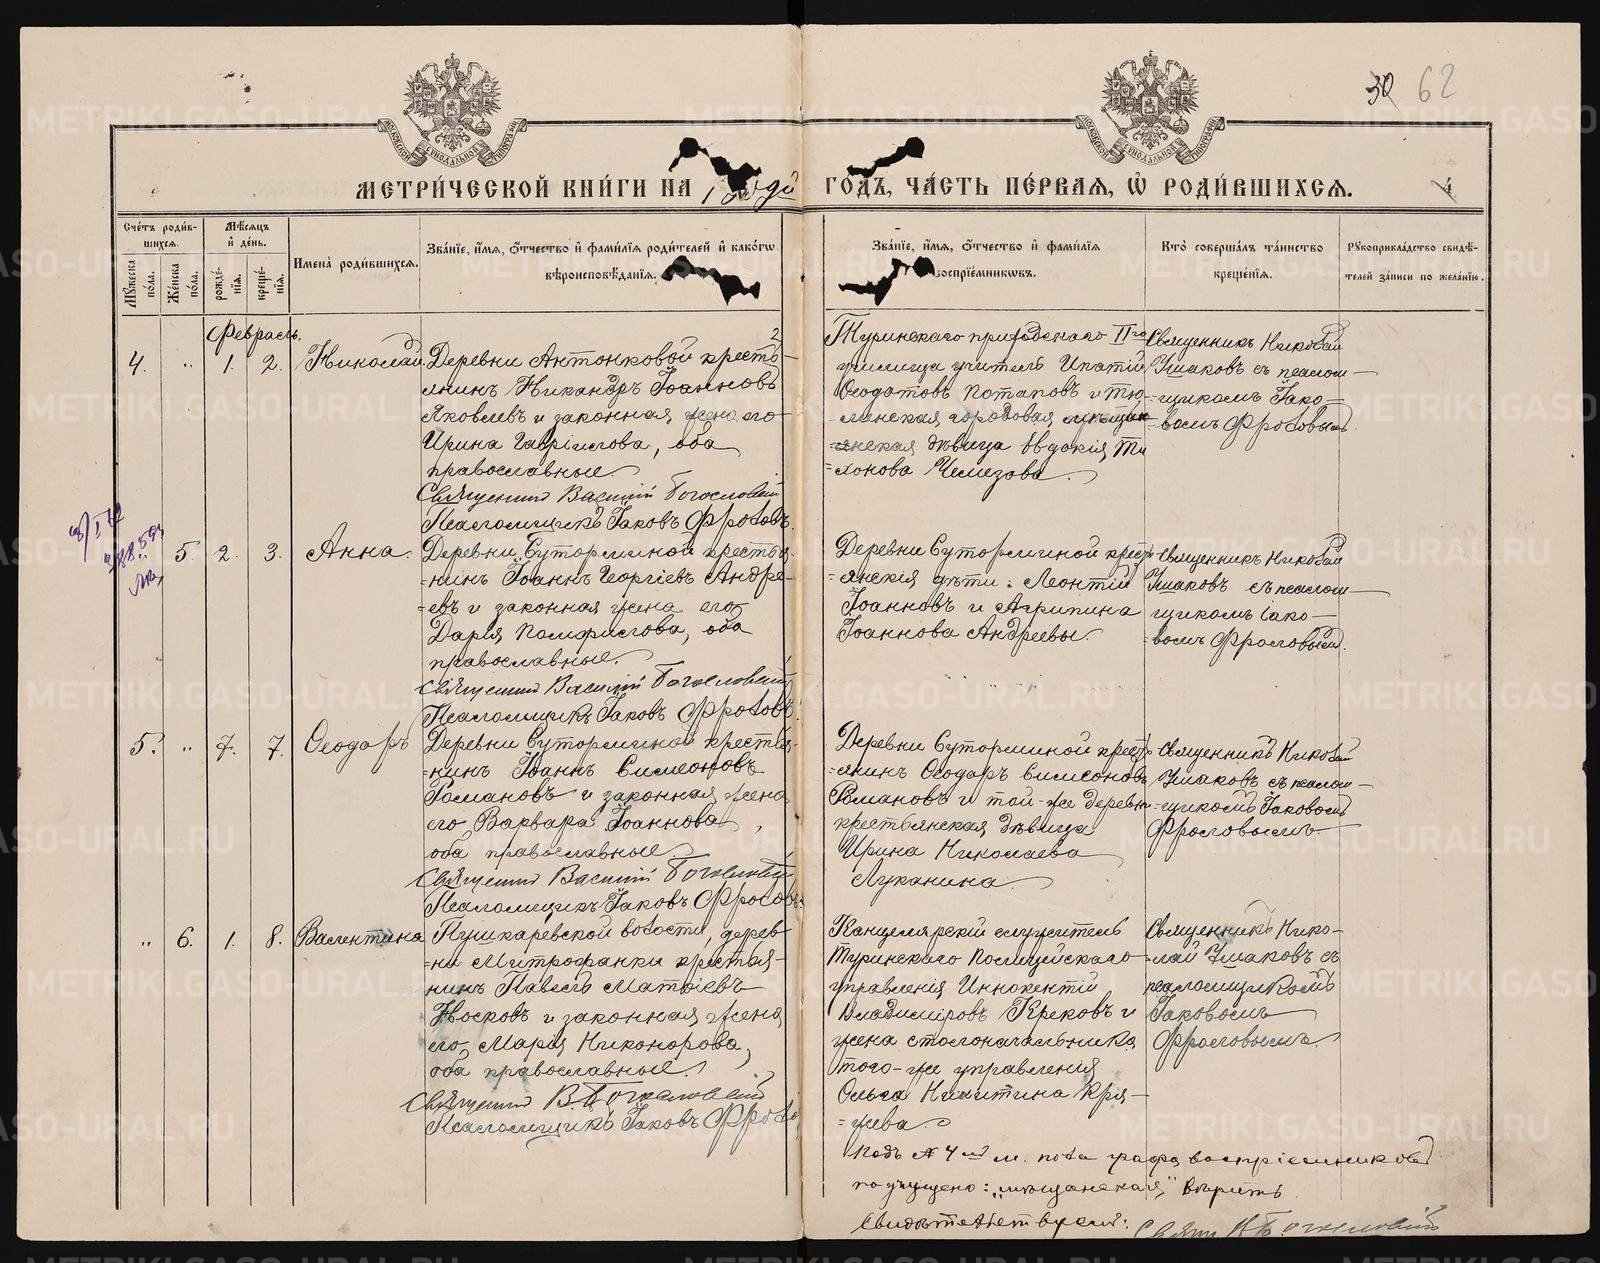 30 62
МЕТРИ́ЧЕСКОЙ КНИ́ГИ НА 1 года
ГОДЪ, ЧА́СТЬ ПЕ́РВАЯ, Ѡ҆ РОДИ́ВШИХСЯ.
4
Сче́тъ роди́в-
шихся.
Мѣ́сяцъ
и҆ де́нь.
Му́жеска по́ла.
Же́нска по́ла.
рожде́-нїя.
креще́-нїя.
Имена̀ роди́вшихся.
Зва́нїе, и҆́мя, ѻ҆́тчество и҆ фами́лїя роди́телей и҆ како́гѡ
вѣроисповѣ́данїя.
Зва́нїе, и҆́мя, ѻ҆́тчество и҆ фами́лїя
воспрїе́мниковъ.
Кто̀ соверша́лъ та́инство
креще́нїя.
Рꙋкоприкла́дство свидѣ́-
телей за́писи по жела́нїю.
Февраль.
2
4. " 1. 2. Николай.
Деревни Антонковой кресть-
янинъ Никандръ Іоанновъ
Яковлевъ и законная жена его
Ирина Гавріилова, оба
православные.
Священник Василий Богословский
Псаломщикъ Іаковъ Фроловъ.
Туринскаго приходскаго IIго
училища учитель Ипатій
Ѳеодотовъ Потаповъ и Тю-
менская городовая мѣщан
=янская дѣвица Евдокія Ти
=хонова Чемезова.
Священникъ Николай
Ушаковъ съ псалом-
=щикомъ Іако-
=вомъ Фроловымъ
" 5. 2. 3. Анна.
Деревни Суторминой крестья-
=нинъ Іоаннъ Георгіевъ Андре-
=евъ и законная жена его
Дарія Памфилова, оба
православные.
Священник Василий Богословский
Псаломщикъ Іаковъ Фроловъ.
Деревни Суторминой крест-
=янскія дѣти: Леонтій
Іоанновъ и Агрипина
Іоаннова Андреевы.
Священникъ Николай
Ушаковъ съ псалом-
щикомъ Іако-
=вомъ Фроловымъ.
5. " 7. 7. Ѳеодоръ
Деревни Суторминой крестья-
=нинъ Іоаннъ Симеоновъ
Романовъ и законная жена
его Варвара Іоаннова,
оба православные
Священник Василий Богословский
Псаломщикъ Іаковъ Фроловъ.
Деревни Суторминой крест-
=янинъ Ѳеодоръ Симеоновъ
Романовъ и той-же деревни
крестьянская дѣвица
Ирина Николаева
Луканина.
Священникъ Николай
Ушаковъ съ псалом-
=щикомъ Іаковомъ
Фроловымъ
" 6. 1. 8. Валентина
Пушкаревской волости, дерев-
ни Митрофанки крестья-
нинъ Павелъ Матѳіевъ
Носковъ и законная жена
его, Марія Никонорова,
оба православные.
Священник В. Богословский
Псаломщикъ Іаковъ Фролов
Канцелярскій служитель
Туринскаго Полицейскаго
управленія Иннокентій
Владиміровъ Крековъ и
жена столоначальника
того-же управленія
Ольга Никитина Кря-
=жева.
Священникъ Нико-
=лай Ушаковъ съ
псаломщикомъ
Іаковомъ
Фроловымъ.
Подъ № 4 м. пола графа воспріемниковъ
по : "мѣщанская" вѣрить
Свидѣтельствуемъ: Свящ. В. Богословский
METRIKI.GASO-URAL.RU